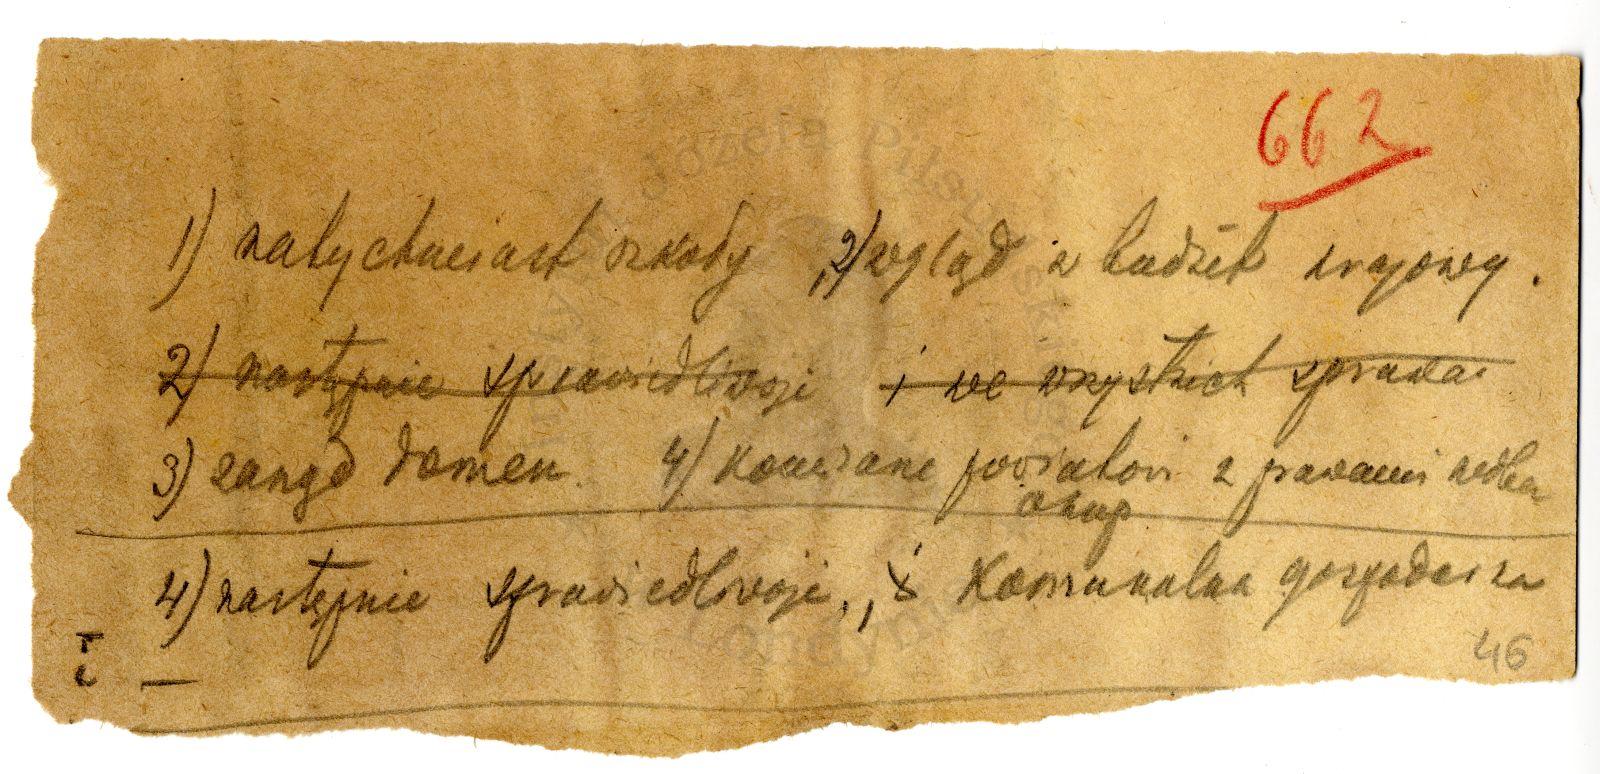 662
1) natychmiast szkoły, 2) wgląd w budżet krajowy.
2) następnie sprawiedliwości i we wszystkich sprawac
3) zarząd domen. 4) Komisarze powiatowi z prawami
okup
4) następnie sprawiedliwości, i Komunalna gospodarka
46